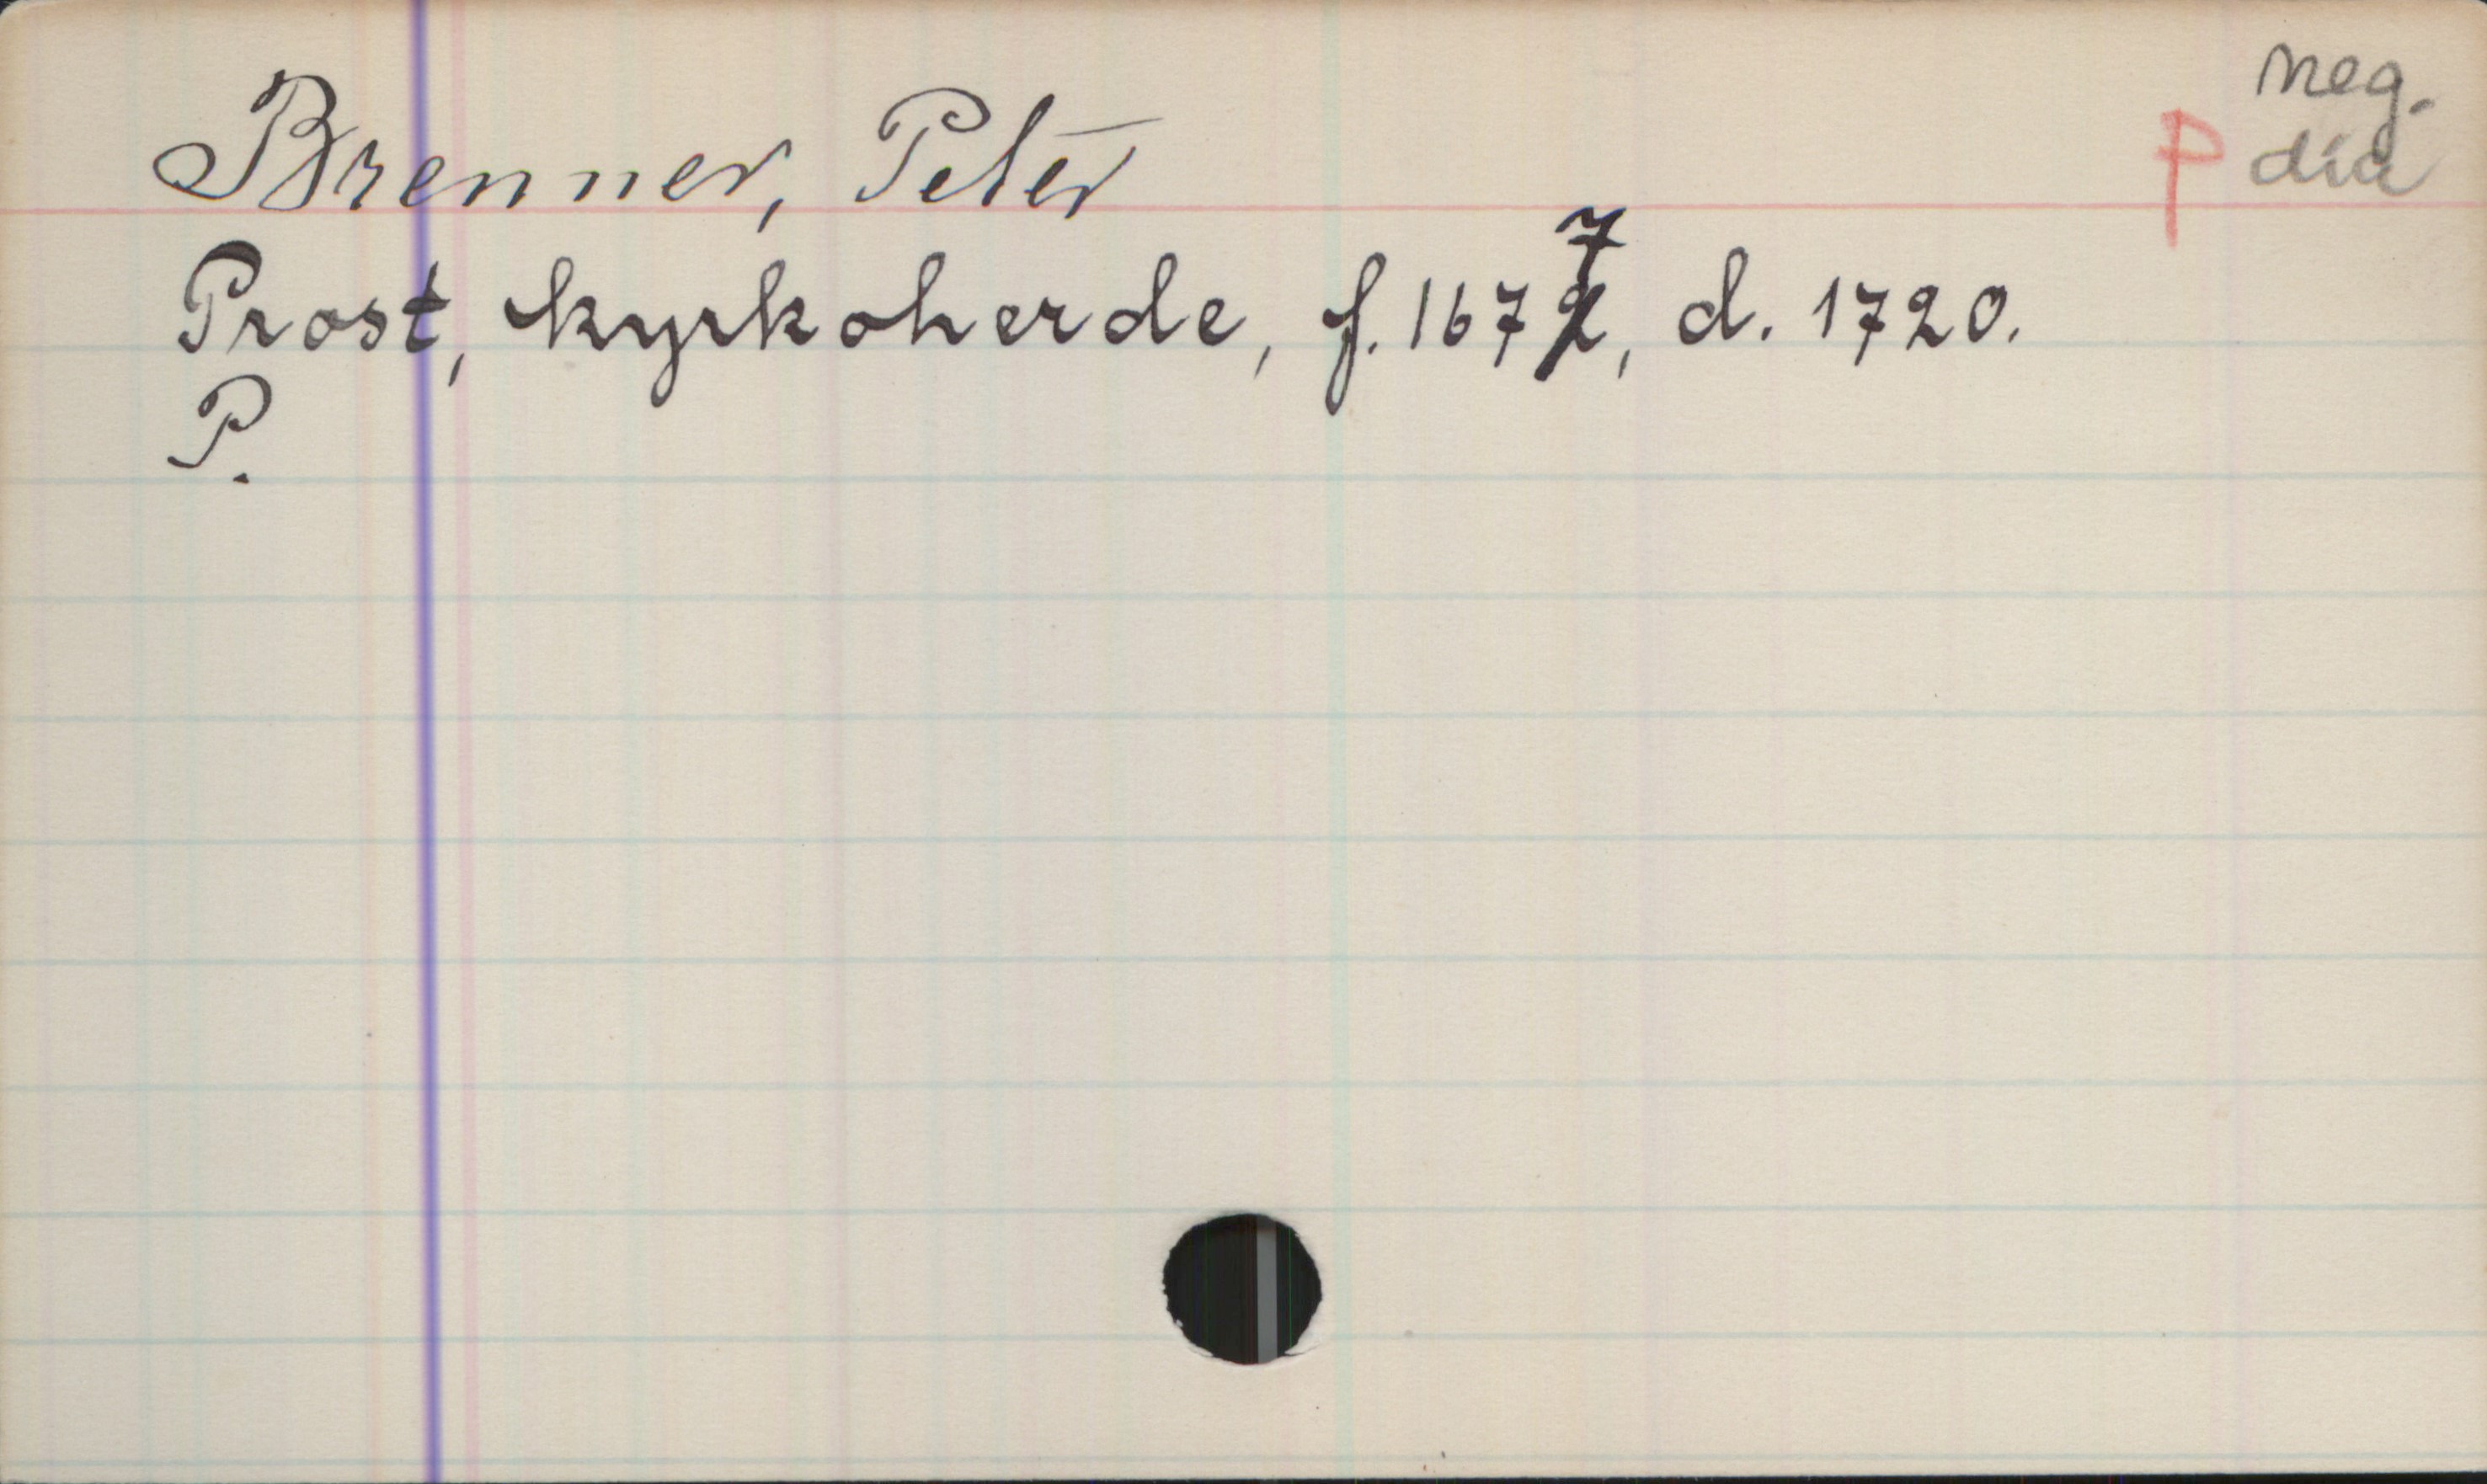 Brenner, Peter
neg.
P dia
Prost, kyrkoherde, f. 1677, d. 1720.
P.